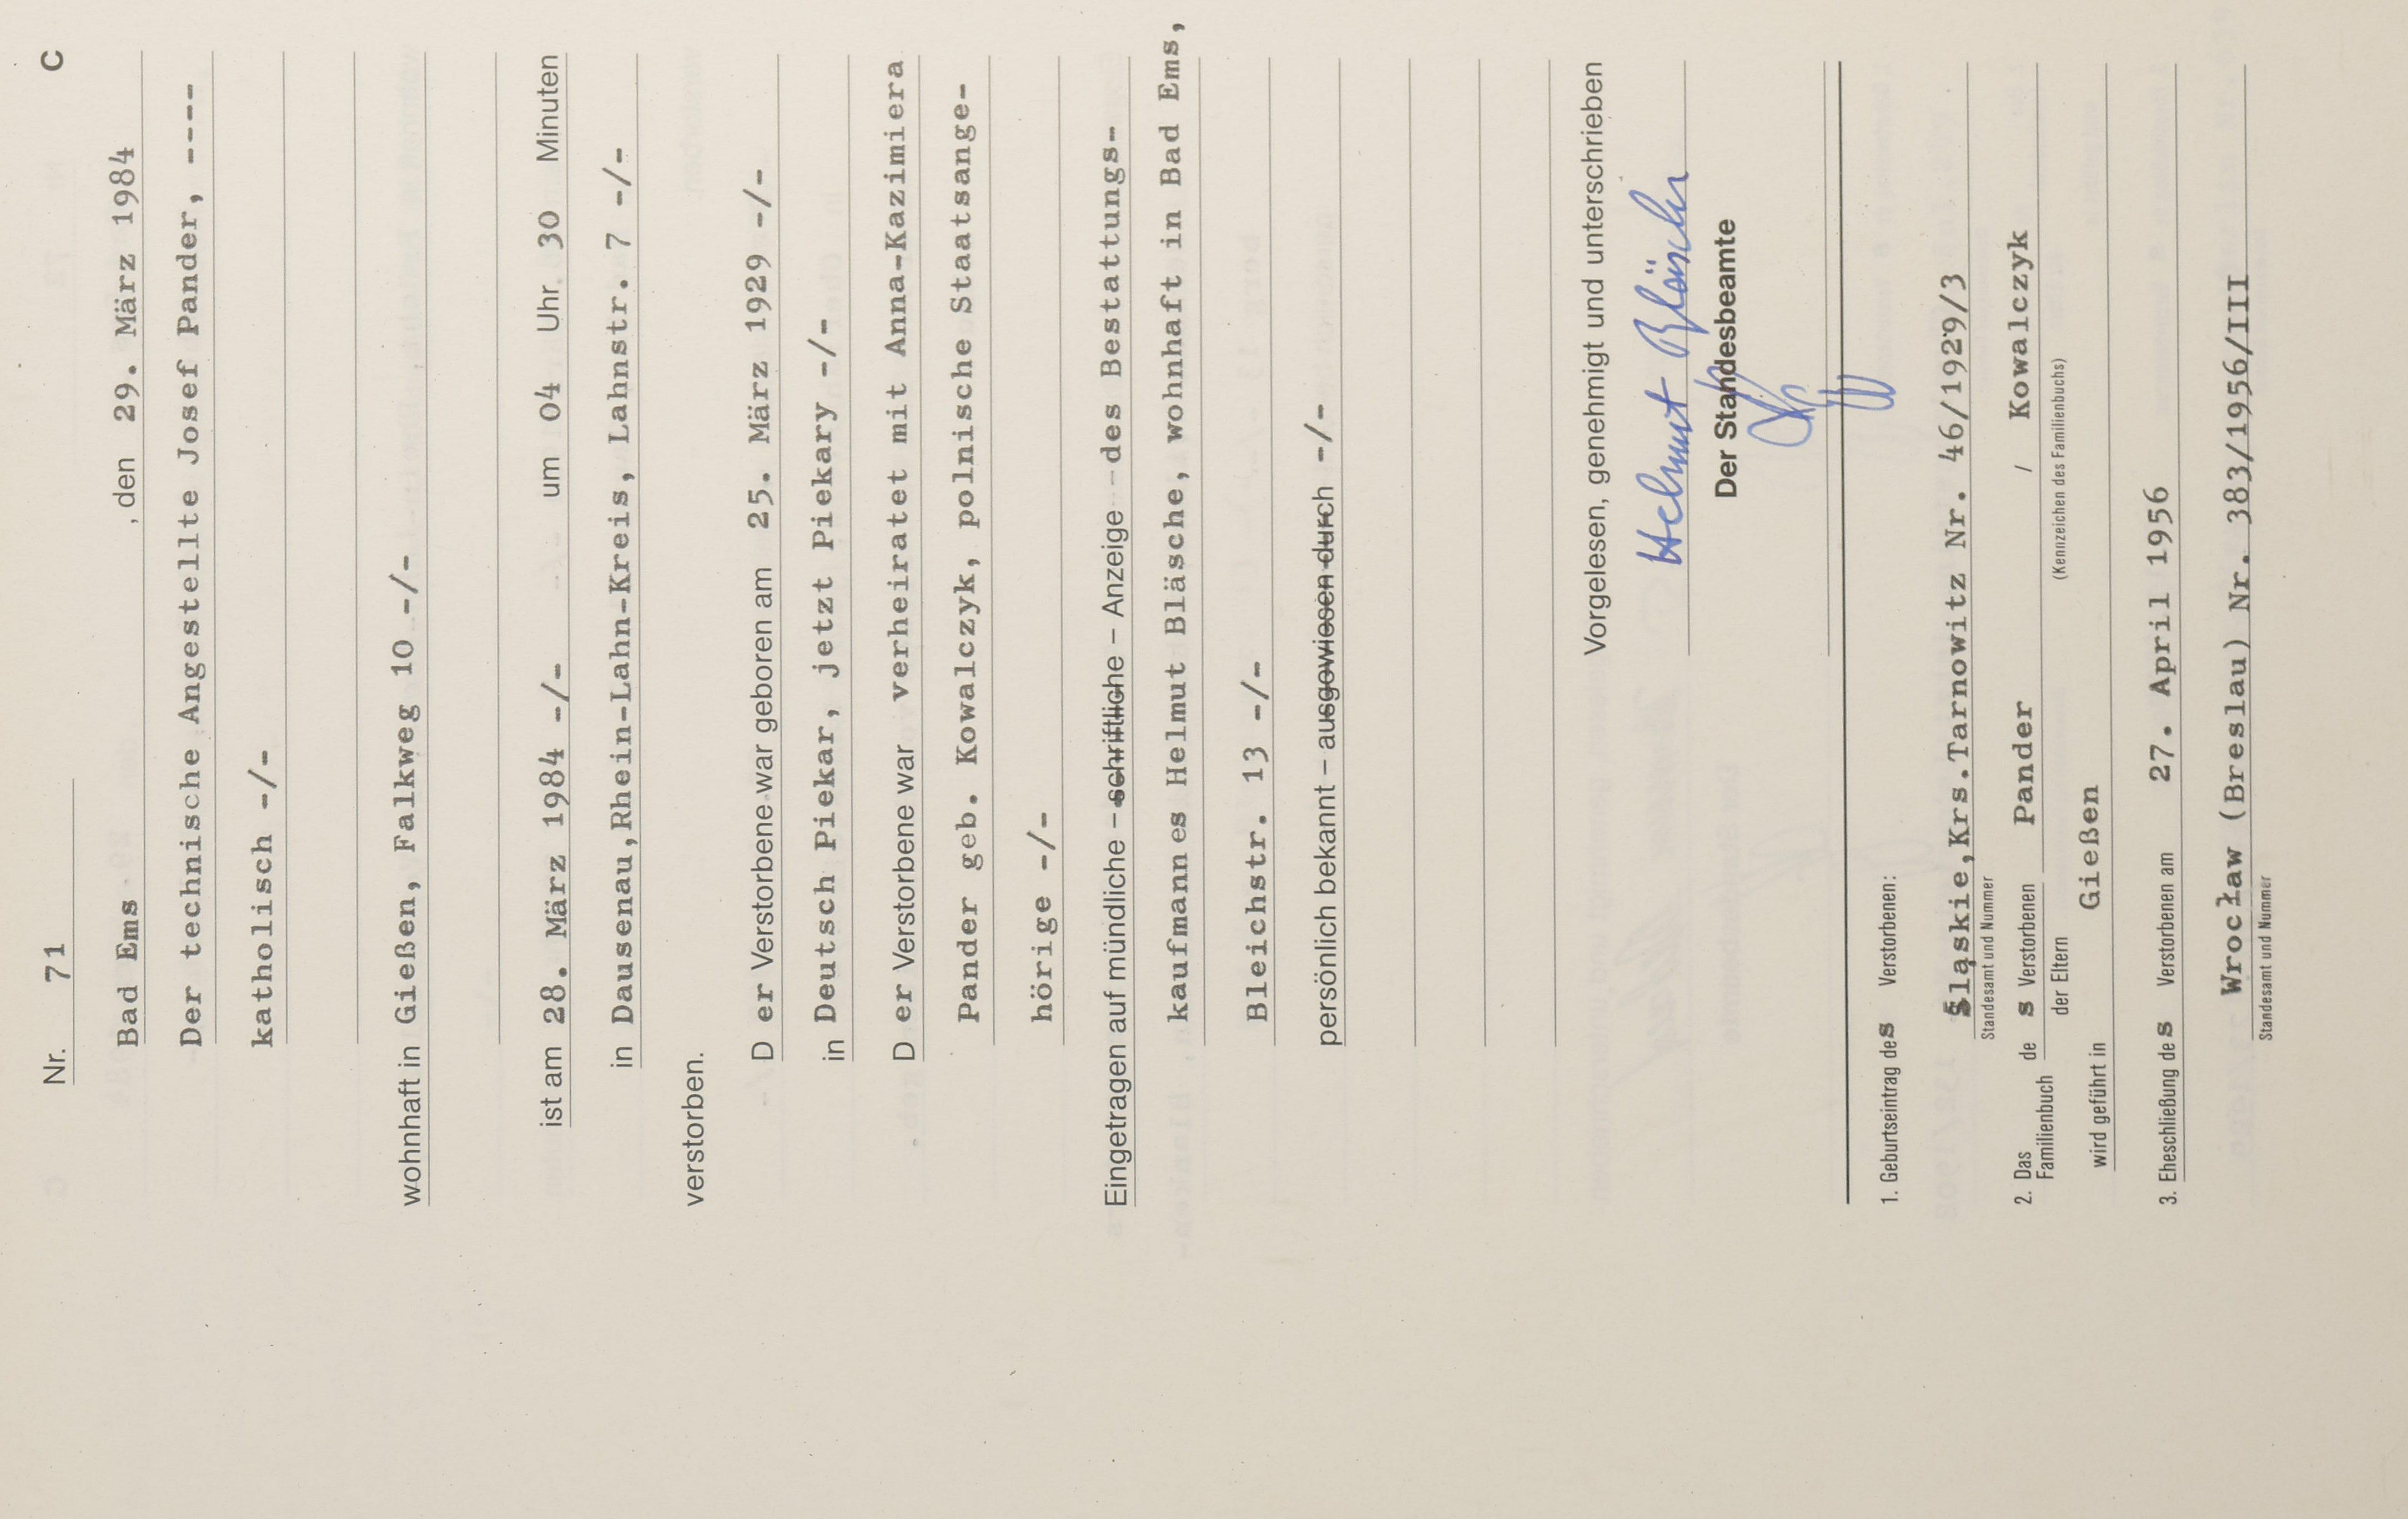 Nr. 71 C
Bad Ems , den 29. März 1984
Der technische Angestellte Josef Pander, ----
katholisch -/-
wohnhaft in Gießen, Falkweg 10 -/-
ist am 28. März 1984 -/- um 04 Uhr 30 Minuten
in Dausenau,Rhein-Lahn-Kreis, Lahnstr. 7 -/-
verstorben.
D er Verstorbene war geboren am 25. März 1929 -/-
in Deutsch Piekar, jetzt Piekary -/-
D er Verstorbene war verheiratet mit Anna-Kazimiera
Pander geb. Kowalczyk, polnische Staatsange-
hörige -/-
Eingetragen auf mündliche – schriftliche – Anzeige des Bestattungs-
kaufmannes Helmut Bläsche, wohnhaft in Bad Ems,
Bleichstr. 13 -/-
persönlich bekannt – ausgewiesen durch -/-
Vorgelesen, genehmigt und unterschrieben
Helmut Bläsche
Der Standesbeamte
1. Geburtseintrag des Verstorbenen:
Śląskie,Krs.Tarnowitz Nr. 46/1929/3
Standesamt und Nummer
2. Das Familienbuch de s Verstorbenen der Eltern Pander / Kowalczyk
(Kennzeichen des Familienbuchs)
wird geführt in Gießen
3. Eheschließung de s Verstorbenen am 27. April 1956
Wrocław (Breslau) Nr. 383/1956/III
Standesamt und Nummer